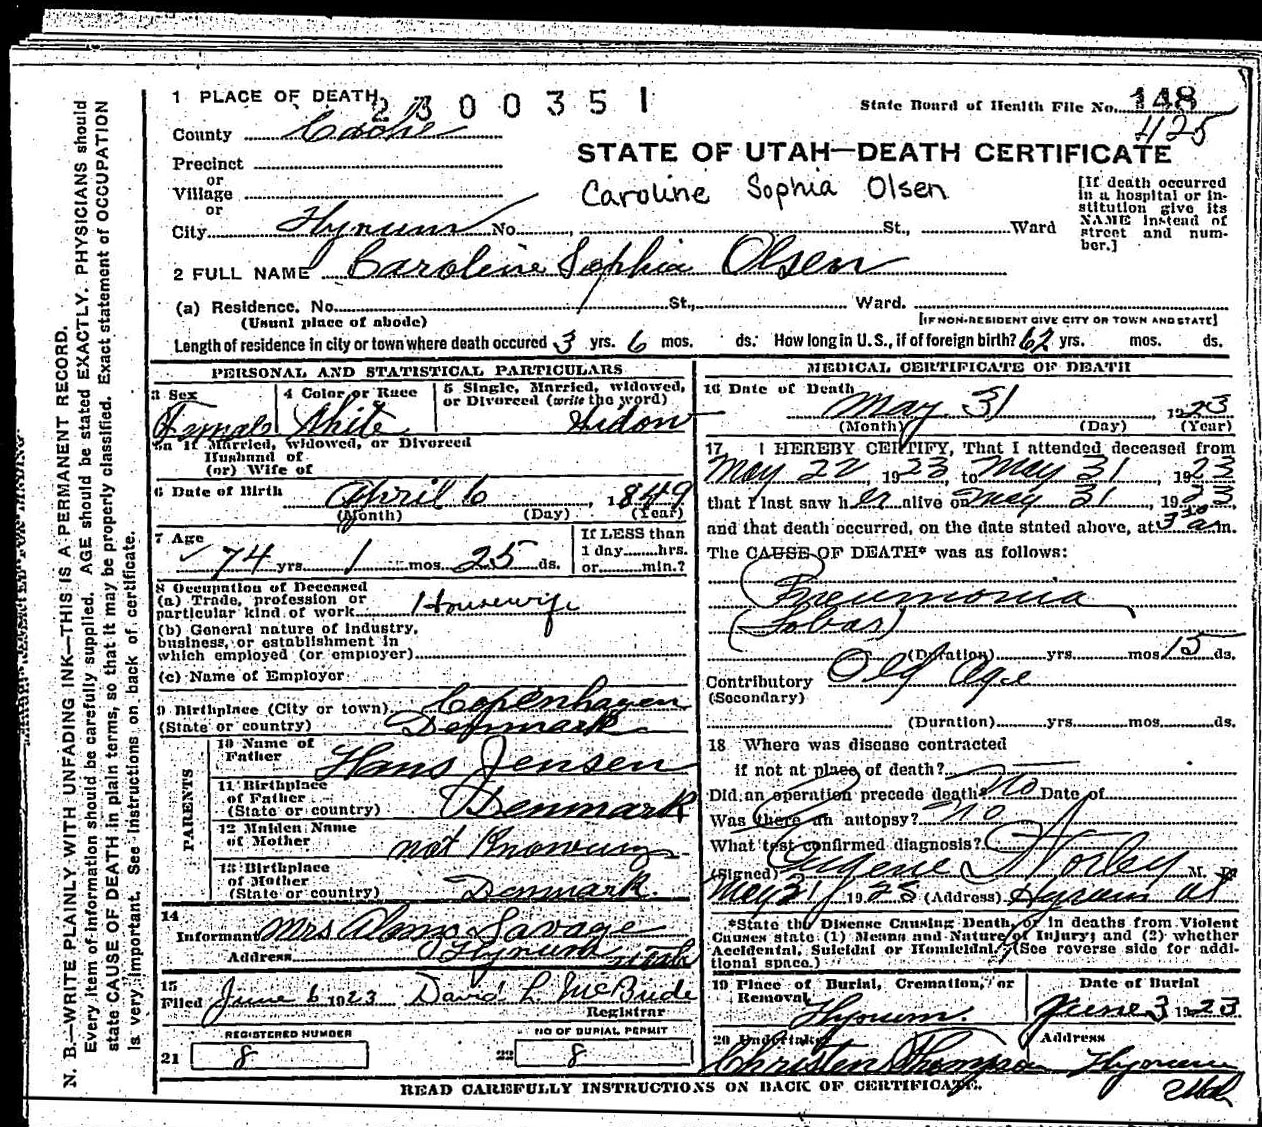 1 PLACE OF DEATH
2300351
State Board of Health File No. 148
425
County Cache
STATE OF UTAH—DEATH CERTIFICATE
Precinct
or
Village
or
Caroline Sophia Olsen
[If death occurred in a hospital or institution give its NAME instead of street and number.]
City Hyrum No. , St., Ward
2 FULL NAME Caroline Sophia Olsen
(a) Residence. No. St., Ward.
(Usual place of abode)
[IF NON-RESIDENT GIVE CITY OR TOWN AND STATE]
Length of residence in city or town where death occured 3 yrs. 6 mos. ds. How long in U.S., if of foreign birth? 62 yrs. mos. ds.
PERSONAL AND STATISTICAL PARTICULARS
3 Sex
Female
4 Color or Race
White
5 Single, Married, widowed,
or Divorced (write the word)
Widow
5a If Married, widowed, or Divorced
Husband of
(or) Wife of
6 Date of Birth April 6, 1849
(Month) (Day) (Year)
7 Age
74 yrs. 1 mos. 25 ds.
If LESS than
1 day hrs.
or min.?
8 Occupation of Deceased
(a) Trade, profession or
particular kind of work Housewife
(b) General nature of industry,
business, or establishment in
which employed (or employer)
(c) Name of Employer
9 Birthplace (City or town) Copenhagen
(State or country) Denmark
PARENTS
10 Name of
Father Hans Jensen
11 Birthplace
of Father
(State or country) Denmark
12 Maiden Name
of Mother not Knowing
13 Birthplace
of Mother
(State or country) Denmark.
14
Informant Mrs Alonzo Savage
Address Hyrum Utah
15
Filed June 6 1923 David L McBride
Registrar
REGISTERED NUMBER
21 8
NO OF BURIAL PERMIT
22 8
MEDICAL CERTIFICATE OF DEATH
16 Date of Death
May 31 1923
(Month) (Day) (Year)
17 I HEREBY CERTIFY, That I attended deceased from
May 22, 1923, to May 31, 1923
that I last saw her alive on May 31, 1923,
and that death occurred, on the date stated above, at 3 30 a m.
The CAUSE OF DEATH* was as follows:
Pneumonia
(Lobar)
(Duration) yrs. mos. 15 ds.
Contributory Old Age
(Secondary)
(Duration) yrs. mos. ds.
18 Where was disease contracted
if not at place of death?
Did an operation precede death? No Date of
Was there an autopsy? no
What test confirmed diagnosis?
(Signed) Eugene Worley M. D.
May 31, 1923 (Address) Hyrum Ut
*State the Disease Causing Death, or in deaths from Violent
Causes state (1) Means and Nature of Injury; and (2) whether
Accidental, Suicidal or Homicidal. (See reverse side for addi-
tional space.)
19 Place of Burial, Cremation, or
Removal
Hyrum.
Date of Burial
June 3 1923
20 Undertaker
Christen Thompson
Address
Hyrum
Utah
READ CAREFULLY INSTRUCTIONS ON BACK OF CERTIFICATE.
N. B.—WRITE PLAINLY WITH UNFADING INK—THIS IS A PERMANENT RECORD.
Every item of information should be carefully supplied. AGE should be stated EXACTLY. PHYSICIANS should
state CAUSE OF DEATH in plain terms, so that it may be properly classified. Exact statement of OCCUPATION
is very important. See instructions on back of certificate.